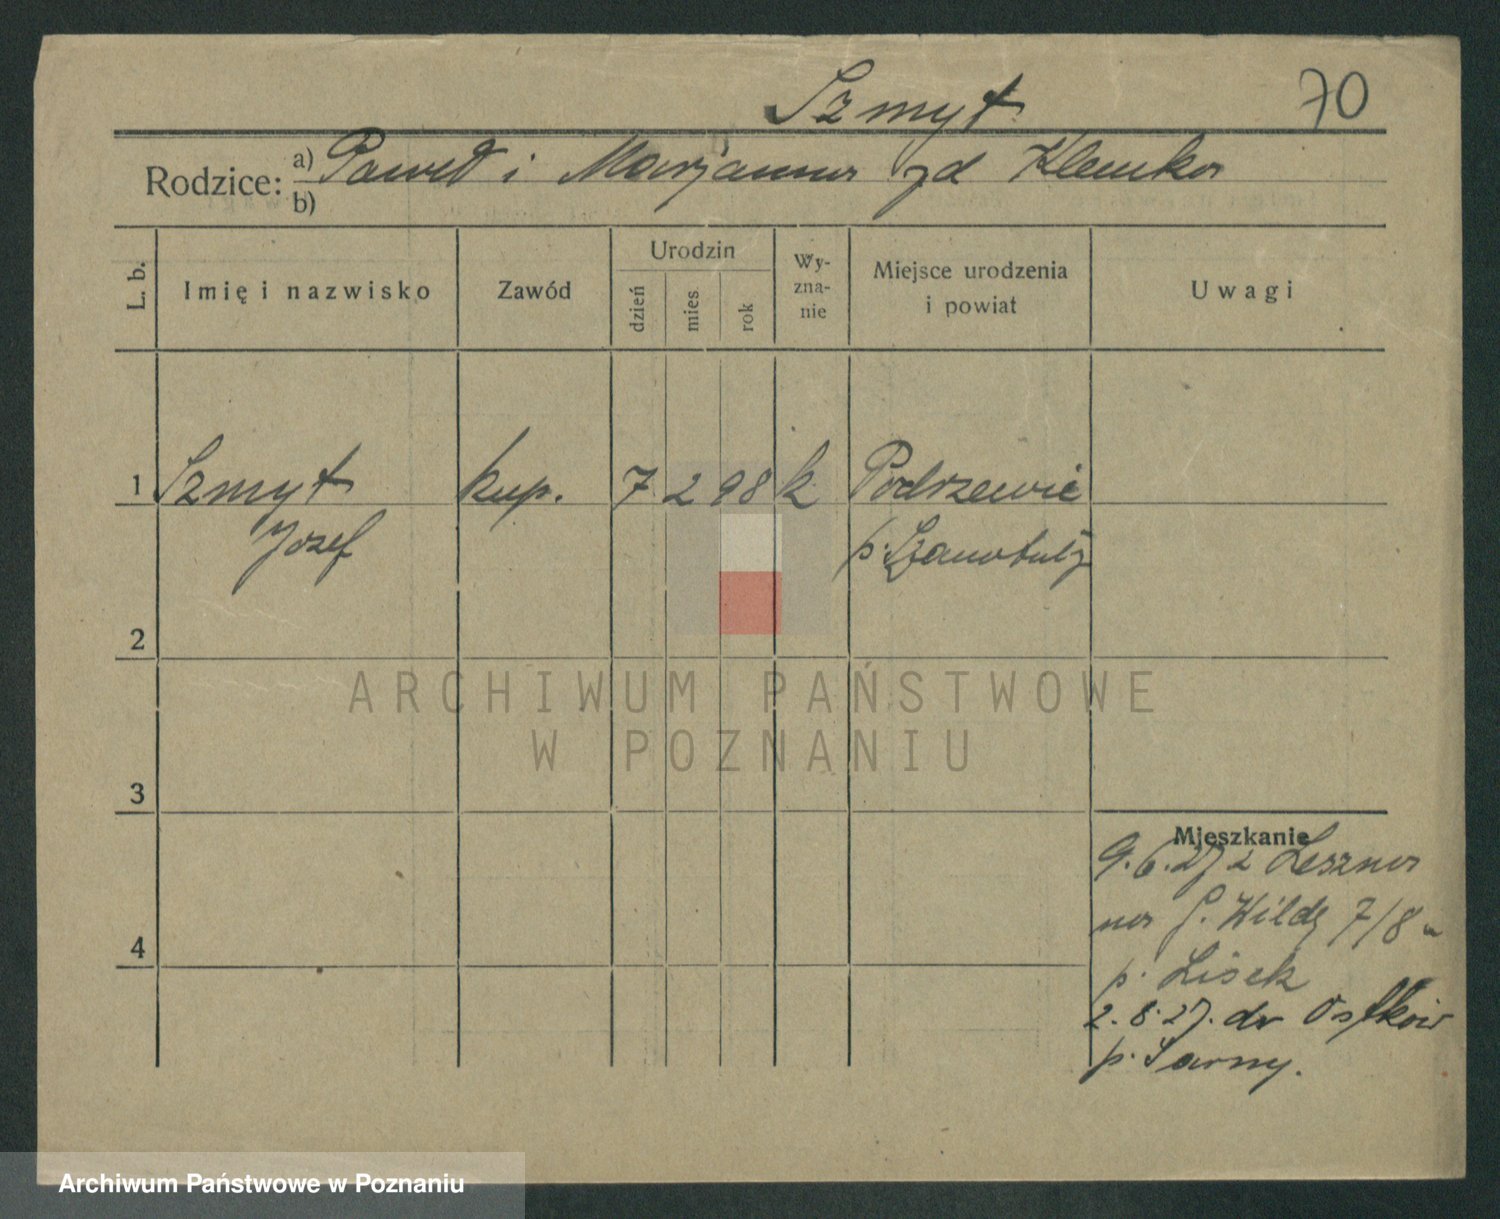 Szmyt
70
Rodzice: a) Paweł i Marjanna zd Klemka
b)
L. b.
Imię i nazwisko
Zawód
Urodzin
dzień
mies.
rok
Wy-
zna-
nie
Miejsce urodzenia
i powiat
Uwagi
1 Szmyt kup. 7 2 98 k. Podrzewie
Józef p. Szamotuły
2
3
4
Mieszkanie
9.6.27 z Leszna
na G. Wildę 7/8
p. Lisek
2.8.27. do
p. Sarny.
ARCHIWUM PAŃSTWOWE
W POZNANIU
Archiwum Państwowe w Poznaniu